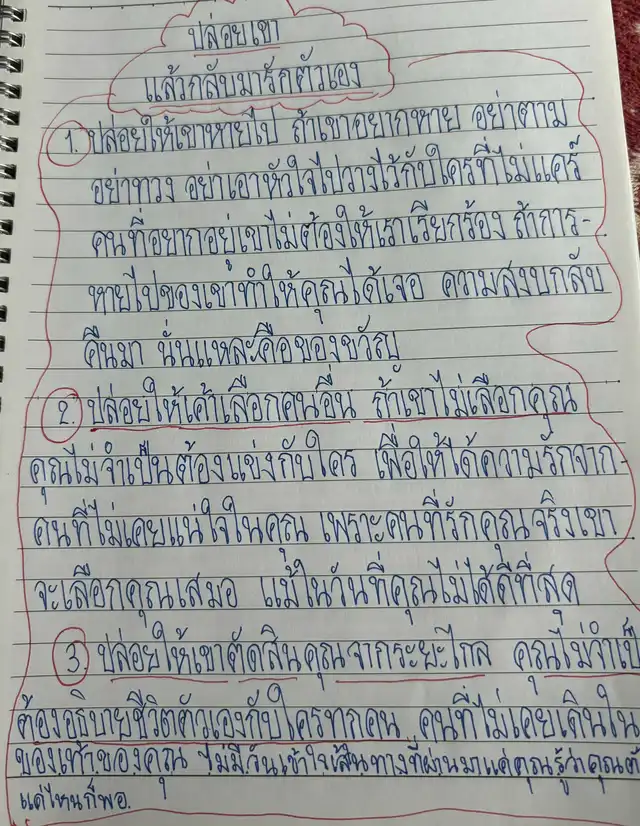 ปล่อยเขา
แล้วกลับมารักตัวเอง
1. ปล่อยให้เขาหายไป ถ้าเขาอยากหาย อย่าตาม
อย่าทวง อย่าเอาหัวใจไปวางไว้กับใครที่ไม่แคร์
คนที่อยากอยู่เขาไม่ต้องให้เราเรียกร้อง ถ้าการ-
หายไปของเขาทำให้คุณได้เจอ ความสงบกลับ
คืนมา นั่นแหละคือของขวัญ
2. ปล่อยให้เค้าเลือกคนอื่น ถ้าเขาไม่เลือกคุณ
คุณไม่จำเป็นต้องแข่งกับใคร เพื่อให้ได้ความรักจาก-
คนที่ไม่เคยแน่ใจในคุณ เพราะคนที่รักคุณจริงเขา
จะเลือกคุณเสมอ แม้ในวันที่คุณไม่ได้ดีที่สุด
3. ปล่อยให้เขาตัดสินคุณจากระยะไกล คุณไม่จำเป็
ต้องอธิบายชีวิตตัวเองกับใครทุกคน คนที่ไม่เคยเดินใน
ของเท้าของคุณ ไม่มีวันเข้าใจเส้นทางที่ผ่านมาแค่คุณรู้ว่าคุณ
แค่ไหนก็พอ.